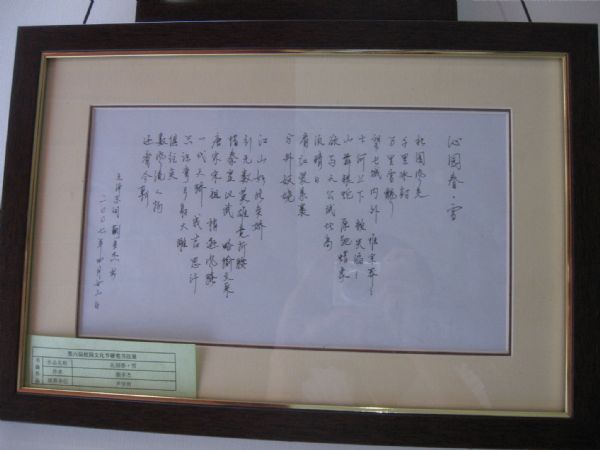 沁园春·雪
北国风光
千里冰封
万里雪飘
望长城内外 惟余莽莽
大河上下 顿失滔滔
山舞银蛇 原驰蜡象
欲与天公试比高
须晴日
看红装素裹
分外妖娆
江山如此多娇
引无数英雄竞折腰
惜秦皇汉武 略输文采
唐宗宋祖 稍逊风骚
一代天骄 成吉思汗
只识弯弓射大雕
俱往矣
数风流人物
还看今朝
毛泽东词
二〇〇七年四月廿二日
第六届校园文化节硬笔书法展
作品名称 沁园春·雪
作者